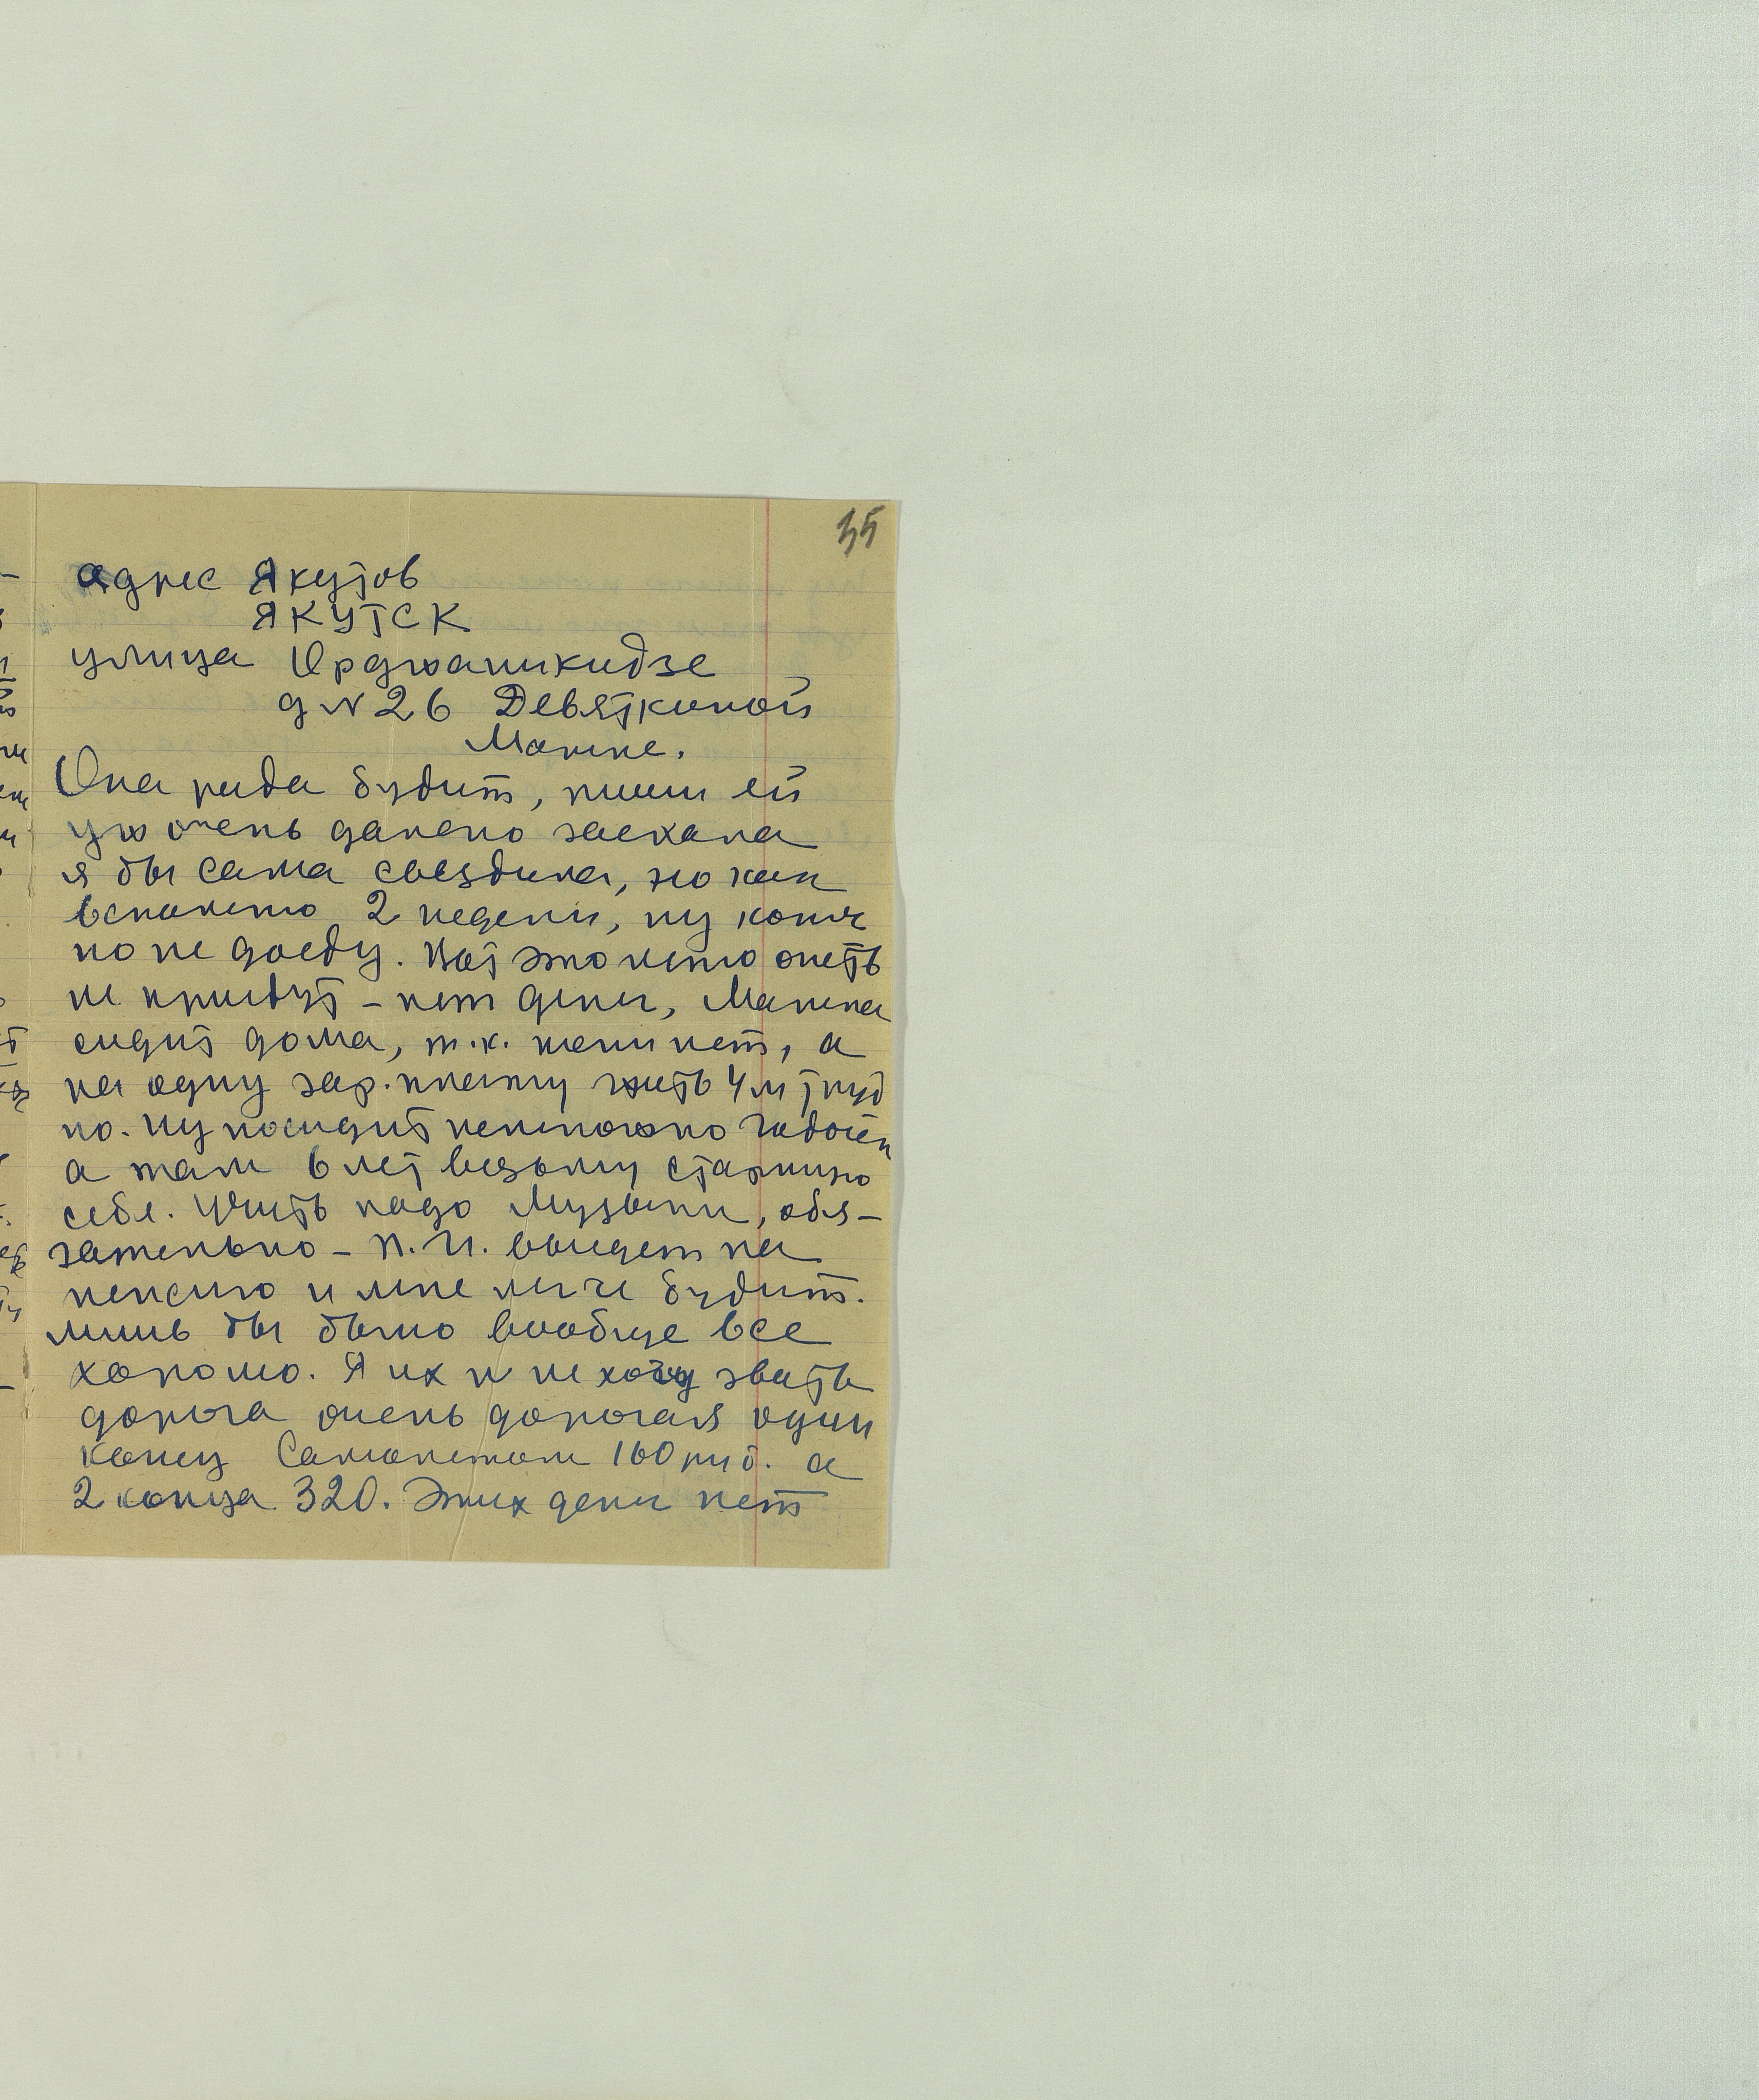 35
адрес Якутов
ЯКУТСК
улица Орджаникидзе
д № 26 Девяткиной
Марине.
Она рада будит, пиши ей
уж очень далеко заехала
я бы сама съездила, но как
вспомню 2 недели, ну конеч
но не доеду. Вот это лето опеть
не приедут – нет денег, Марина
сидит дома, т.к. няни нет, а
на одну зар.плату жить 4м труд
но. Ну посидит немножно годочек
а там 6 лет возьму старшую
себе. Учить надо Музыки, обя-
зательно – П.И. выидет на
пенсию и мне легче будит.
лишь бы было вообще все
хорошо. Я их и не хочу звать
дорога очень дорогая один
конец Самолетом 160 руб. а
2 конца 320. Этих денег нет